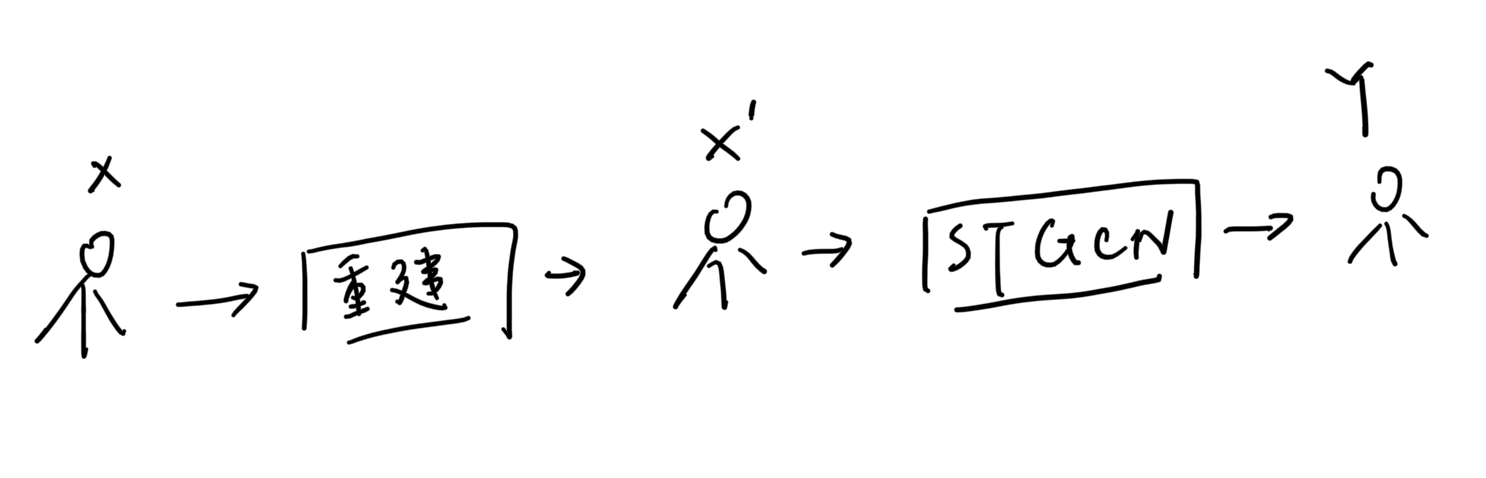 X
重建
X'
STGCN
Y